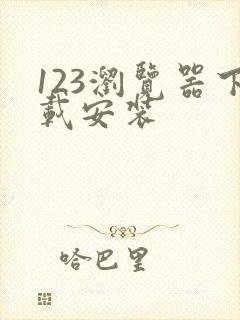 123瀏覽器下
載安裝
哈巴里